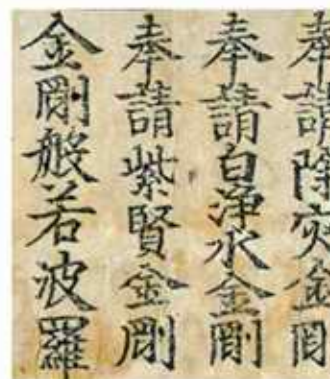 奉請除灾金剛
奉請白淨水金剛
奉請紫賢金剛
金剛般若波羅